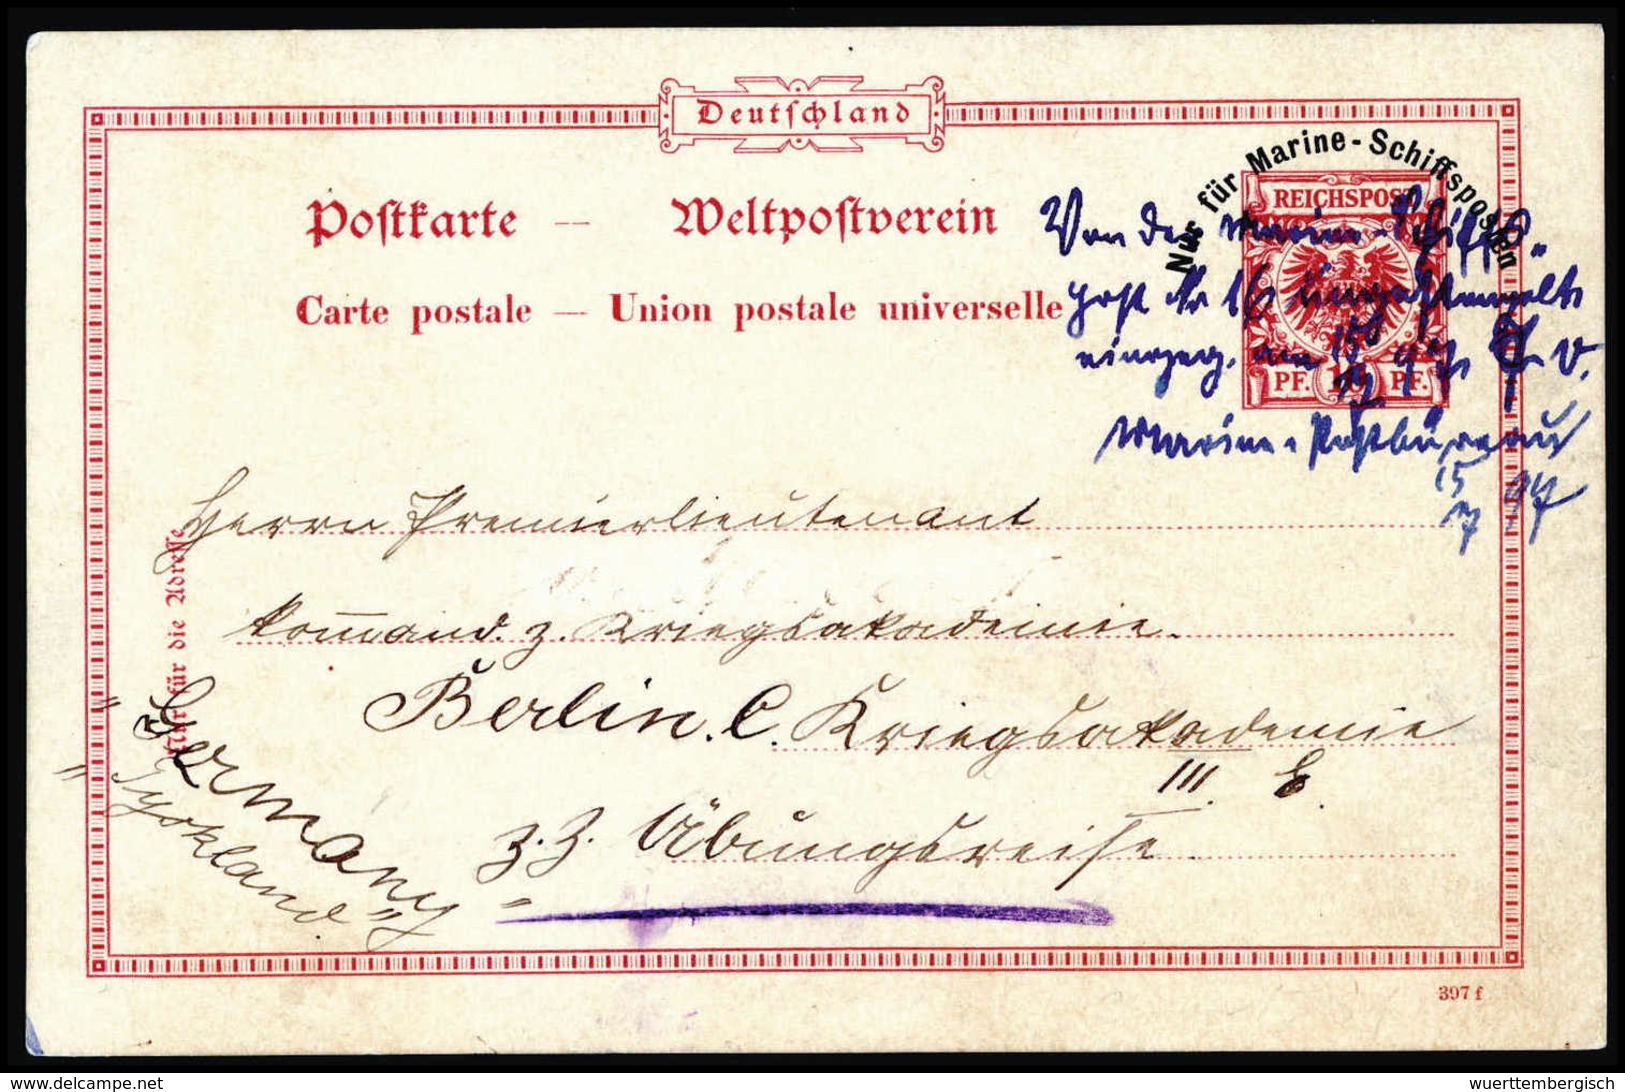 Deutschland
Nur für Marine-Schiffsposten
REICHSPOST
Postkarte — Weltpostverein
Von der Marine-Schiffs-
Carte postale — Union postale universelle
post No 16
einggeg. am 15
PF. 10 PF.
Marine-Postbüreau
15
7 97
Herrn Premierlieutenant
Nur für die Adresse
kommand. z. Kriegsakademie.
Berlin. C. Kriegsakademie
III. E.
z. Z. Übungsreise.
"Germany"
"Tyskland"
397 f
www.delcampe.net
wuerttembergisch